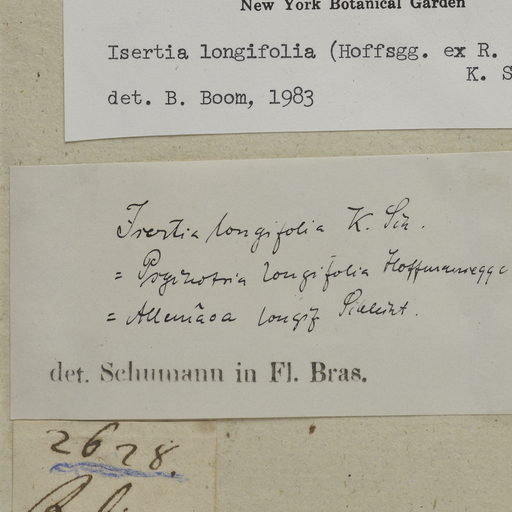 New York Botanical Garden
Isertia longifolia (Hoffsgg. ex R.
K. S
det. B. Boom, 1983
Isertia longifolia K. Sch.
= Psychotria longifolia Hoffmannsegg
= longif
det. Schumann in Fl. Bras.
2628.